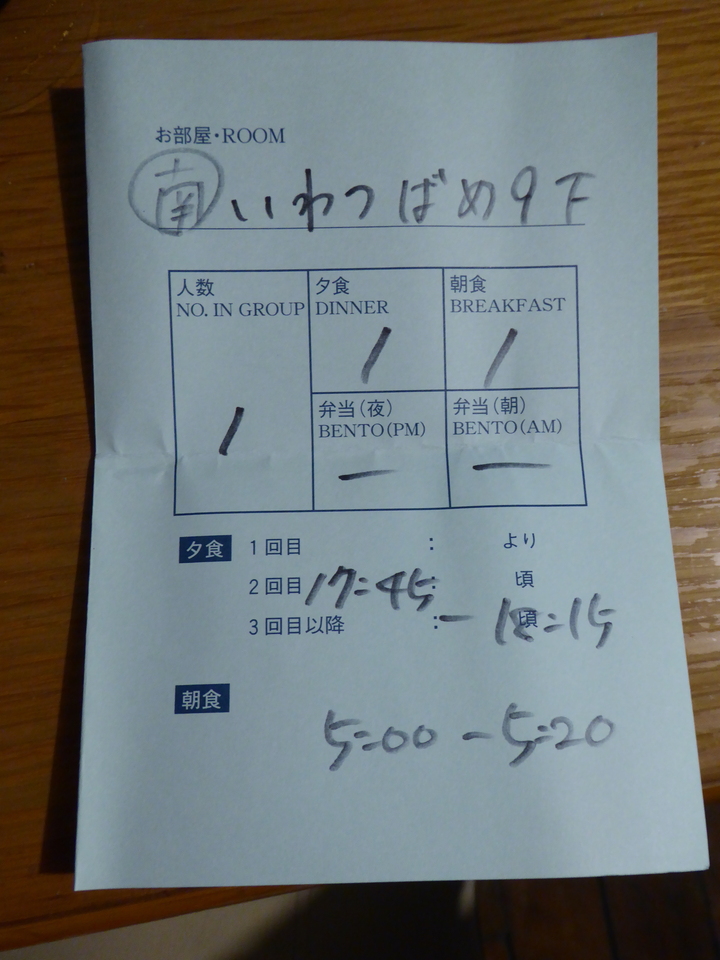 お部屋・ROOM
南 いわつばめ9下
人数 夕食 朝食
NO. IN GROUP DINNER BREAKFAST
1 1
弁当(夜) 弁当(朝)
BENTO(PM) BENTO(AM)
1 — —
夕食 1回目 : より
2回目 17:45 : 頃
3回目以降 : — 18:15 頃
朝食
5:00 — 5:20